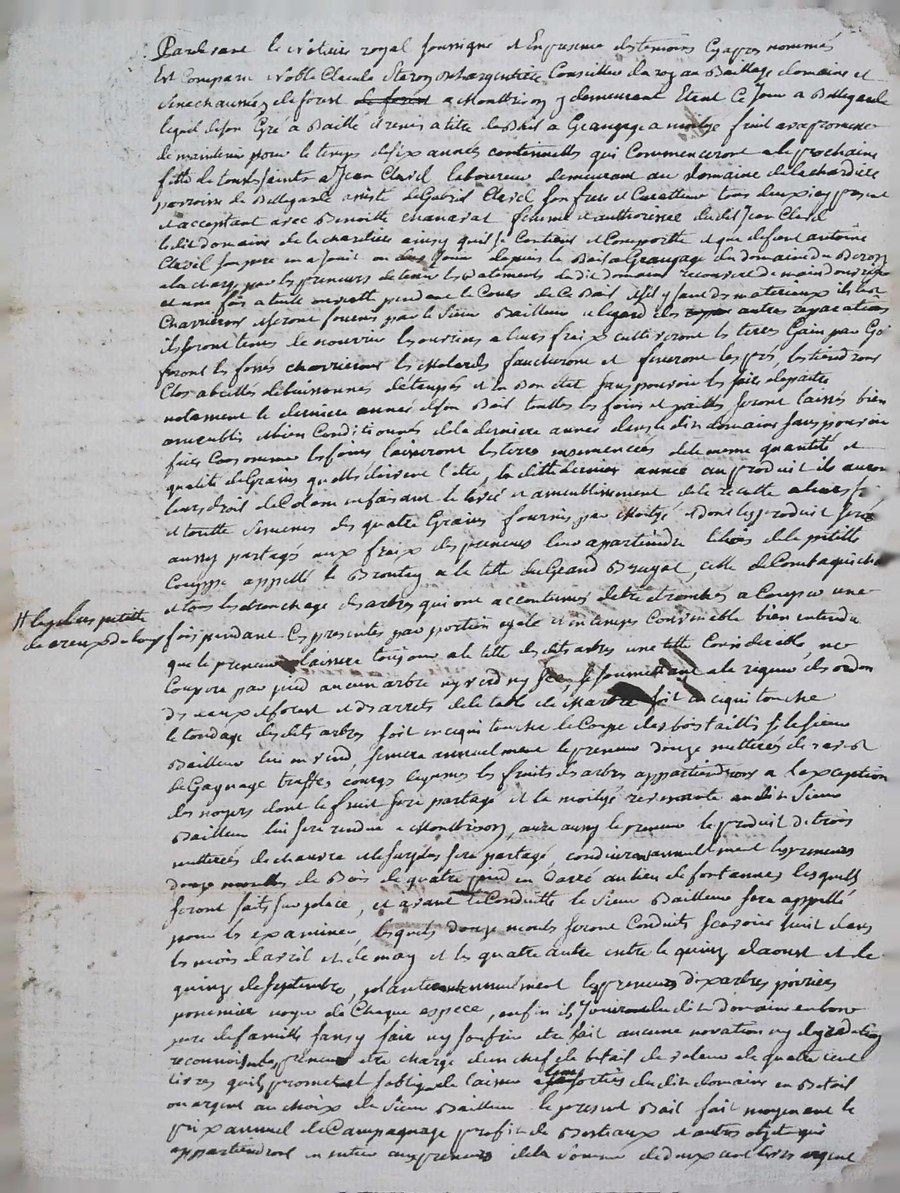 Pardevant le notaire royal soussigné et En presence des temoins Cy apres nommés
Est Comparu noble Claude Conseiller du roy au Bailliage domaine et
Senechaussée de forest de forest a Montbrison y demeurant Etant Ce Jour a Bellegarde
lequel de son Gré a Baillé et remis a titre de Bail a Grangeage a moitié fruit avec promesse
de maintenir pour le temps de six années continuelles qui Commenceront a la prochaine
fette de touts saints a Jean Clavel laboureur demeurant au domaine de la chardiere
parroisse de Bellegarde assisté de Gabriel Clavel son frere et Curatteur tous deux icy present
et acceptant avec Benoitte femme et authorisée dudit Jean Clavel
le dit domaine de la chardiere ainsy quil se Contient et Comporte et que defunt antoine
Clavel son pere en a Joui ou du Jouir depuis le Bail a Grangeage du domaine
a la charge par les preneurs de tenir les Batiments du dit domaine recouverts de main douvrier
et une fois a tuille pendant le Cours de Ce Bail et sil y faut des materiaux ils les
Charrieront et seront fournis par le Sieur Bailleur a legard des autres reparations
ils seront tenus de nourrir les ouvriers a leurs fraix cultiveront les terres Gain par Ga
feront les fossés charrieront les Molards faucheront et feneront les prés, les tiendront
Clos abeillés débuissonnés détaupés et en Bon état sans pouvoir les faire depaitre
notament la derniere année de son Bail touttes les foins et pailles seront laissés bien
ameublis et bien Conditionnés de la derniere année dans le dit domaine sans pouvoir
faire Consommer les foins laisseront les terres ensemencées de la meme quantité et
qualité de Grains quelles doivent l'être, la ditte derniere année au produit ils auront
leurs droit de Colon en faisant la levé et ameublissement de la recolte a leurs fr
et touttes Semences des quatre Grains fournies par Moitié et dont le produit sera
aussy partagé aux fraix des preneurs leur apartiendra de la petitte
Couppe appellé le a la tette du Grand celle de
et tous les etronchage des arbres qui ont accoutumés detre etronchés a Couper une
# petitte
fois pendant Ces presentes par portion egale et en temps Convenable bien entendu
que le preneur laissera toujours a la tette des dits arbres une tette Considerable, ne
Coupera par pied aucun arbre ny verd ny sec, se soumettant a la rigueur des ordon
des eaux et forest et des arrets de la table de marbre soit en ce qui touche
le tondage des dits arbres soit en ce qui touche la Coupe des bois taillis si le sieur
Bailleur lui en vend, semera annuellement le preneur douze metterées de
de Gagnage truffes courges legumes les fruits des arbres appartiendront a l'exception
des noyers dont le fruit sera partagé et la moitié revenante audit Sieur
Bailleur lui sera rendue a Montbrison, aura aussy le preneur le produit de trois
metterées de chanvre et le surplus sera partagé, conduiront annuellement les preneurs
douze moulles de Bois de quatre pied en Carré au lieu de fontannes lesquels
seront faits sur place, et avant de Conduitte le Sieur Bailleur sera appellé
pour les examiner, lesquels douze moules seront Conduits scavoir huit dans
les mois davril et de may et les quatre autre entre le quinze daoust et le
quinze de septembre, planteront annuellement les preneurs dix arbres poiriers
pommier noyer de Chaque espece, enfin ils Jouiront du dit Domaine en bon
pere de famille sans y faire ny souffrir etre fait aucune novation ny degradation
reconnoissent les preneurs etre chargé d'un chef de betail de valeur de quatre cent
livres quils promettent soblige de laisser a leurs sorties du dit domaine en Betail
ou argent au choix du Sieur Bailleur le present Bail fait moyenant le
prix annuel de Campagnage profit de Bestiaux et autres objet qui
appartiendront en entier aux preneurs de la Somme de deux cent livres argent